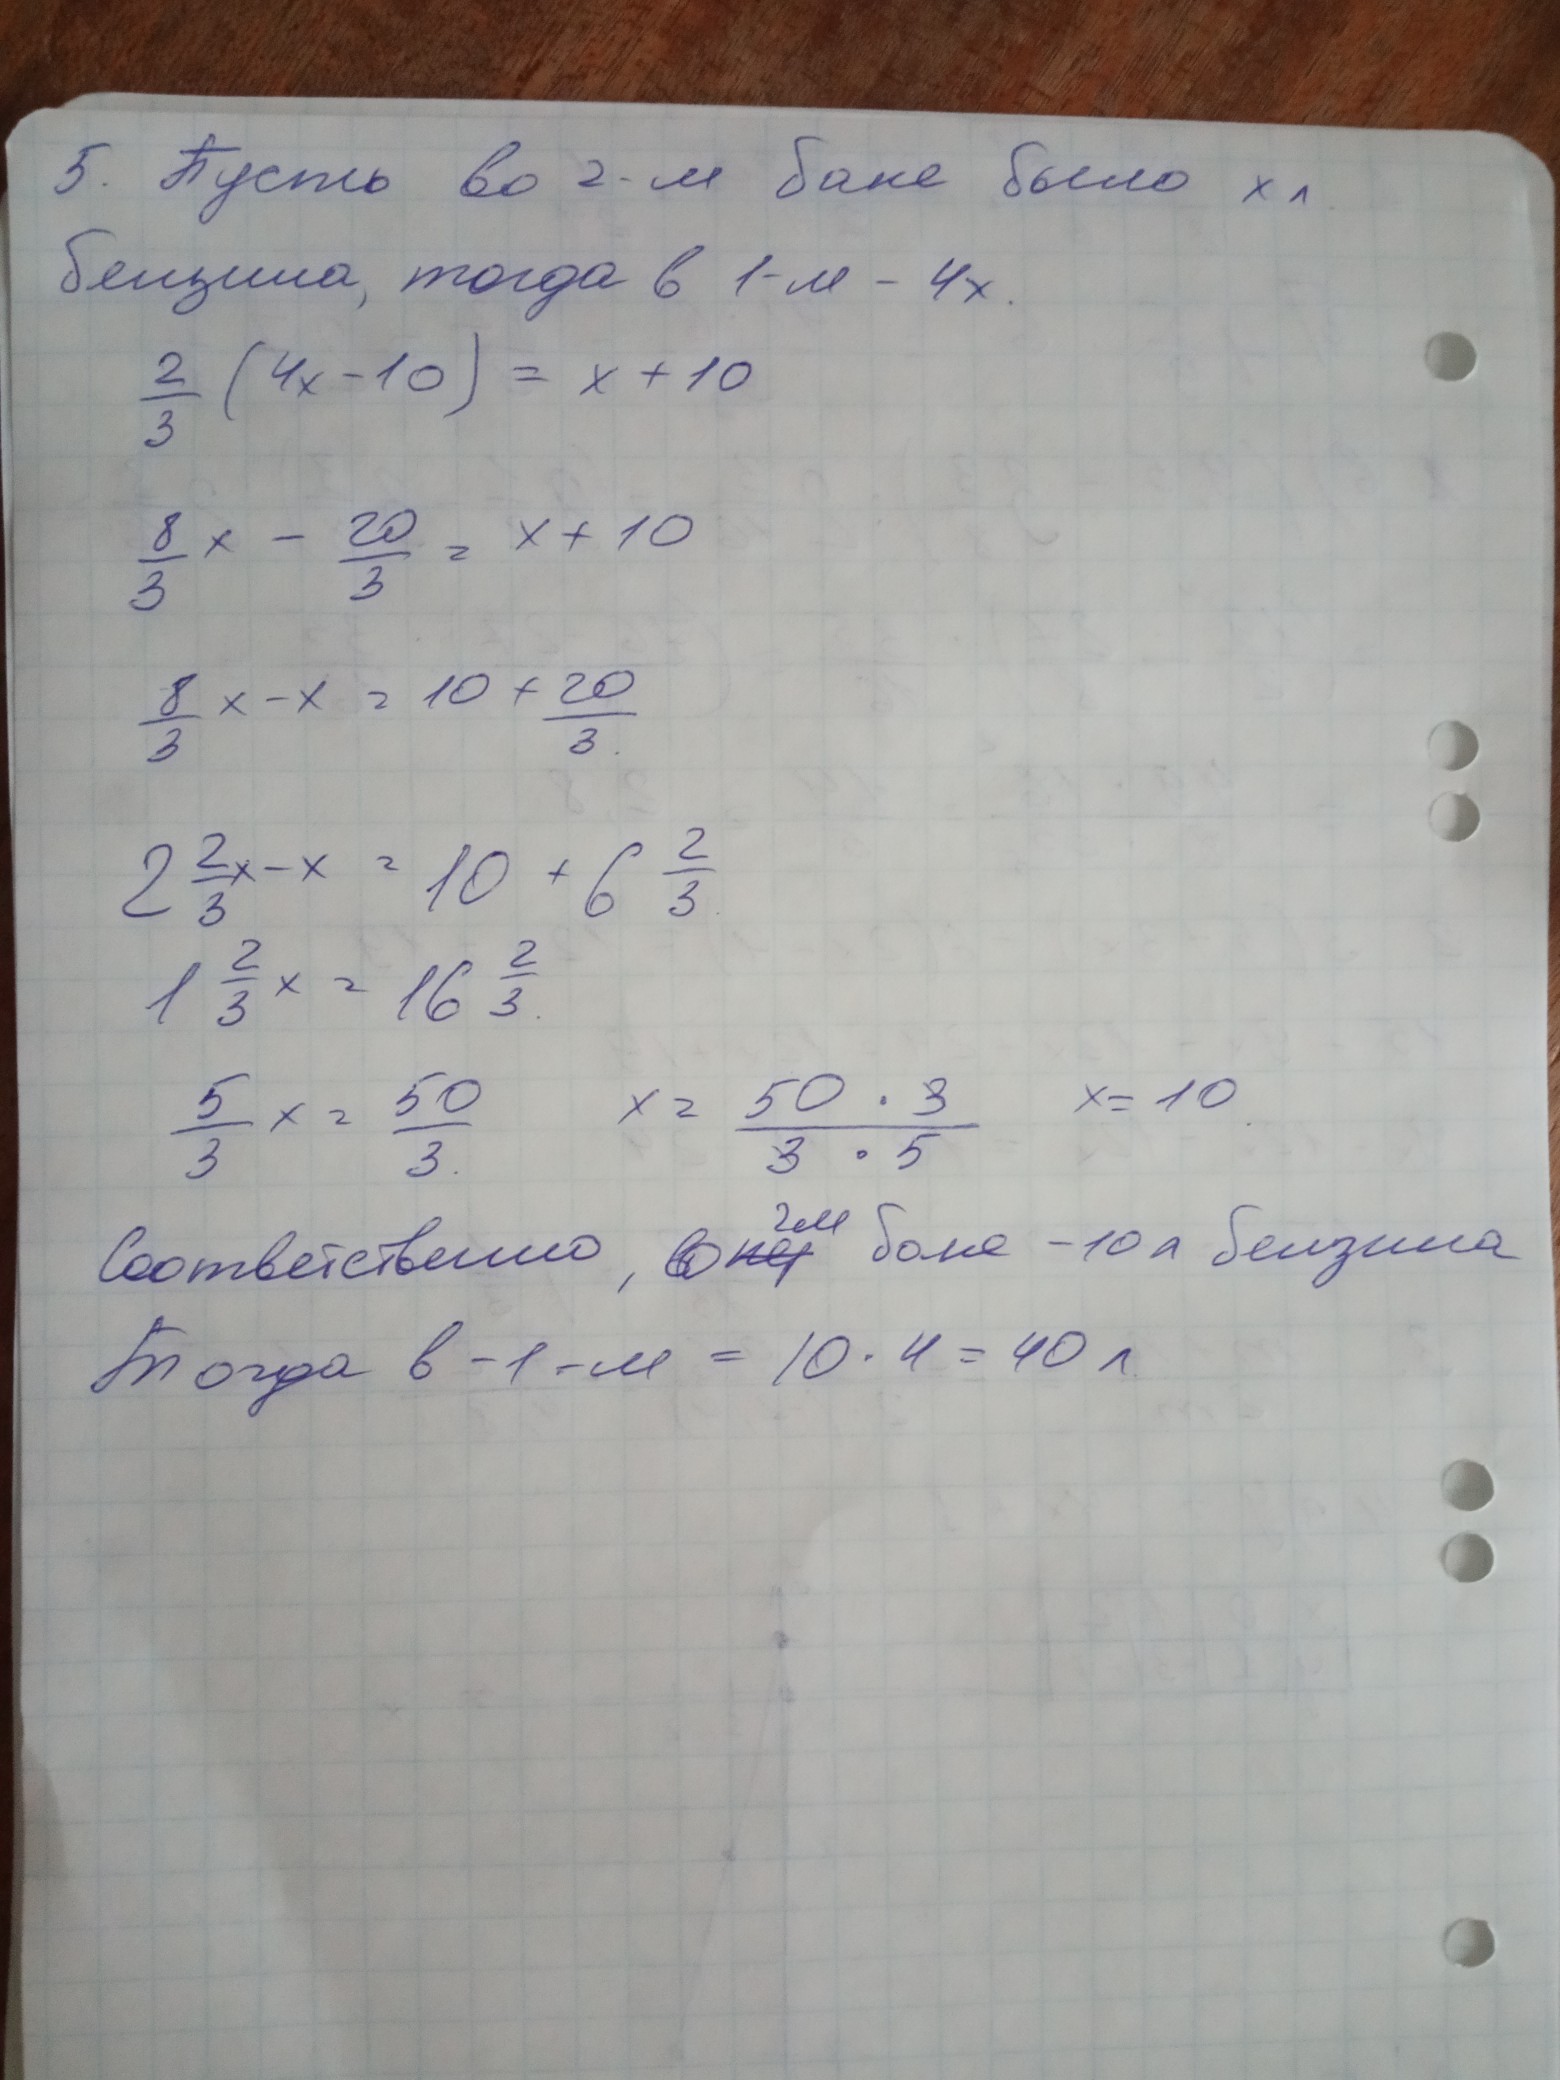 5. Пусть во 2-м баке было x л
бензина, тогда в 1-м - 4x.
2/3 (4x - 10) = x + 10
8/3 x - 20/3 = x + 10
8/3 x - x = 10 + 20/3.
2 2/3 x - x = 10 + 6 2/3.
1 2/3 x = 16 2/3.
5/3 x = 50/3. x = 50 · 3 / 3 · 5 x = 10.
Соответственно, во 2м баке - 10 л бензина
Тогда в - 1 - м = 10 · 4 = 40 л.